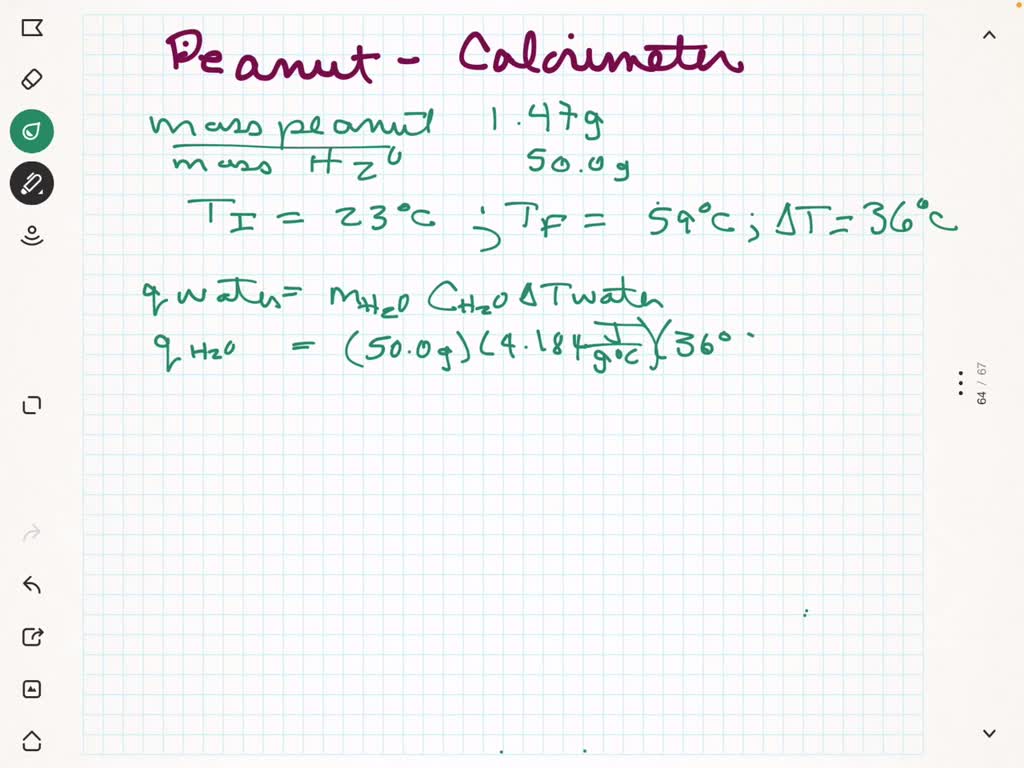 Peanut - Calorimeter
mass peanut 1.47g
mass H2O 50.0g
TI = 23°C ; TF = 59°C ; ΔT = 36°C
q water = mH2O CH2O ΔT water
qH2O = (50.0g)(4.184 J/g°C)(36°
64 / 67